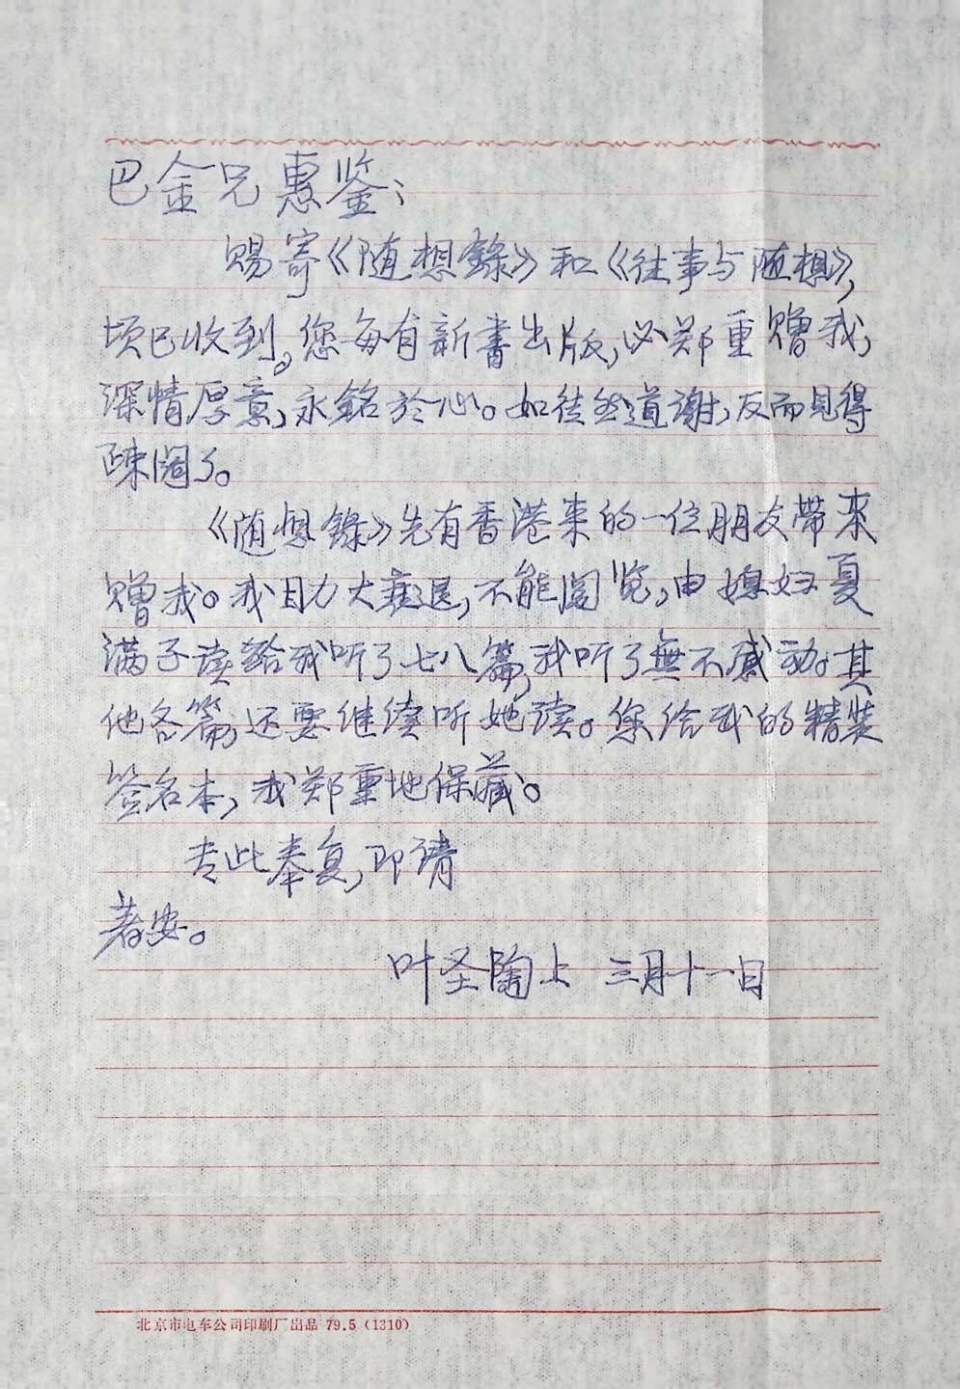 巴金兄惠鉴：
赐寄《随想録》和《往事与随想》，
顷已收到。您每有新書出版，必郑重赠我，
深情厚意，永銘於心。如徒然道谢，反而見得
疎阔了。
《随想錄》先有香港来的一位朋友帶来
赠我。我目力大衰退，不能阅览，由媳妇夏
满子读给我听了七八篇，我听了無不感动。其
他各篇，还要继续听她读。您给我的精装
签名本，我郑重地保藏。
专此奉复，即请
著安。
叶圣陶上 三月十一日
北京市电车公司印刷厂出品 79.5（1310）